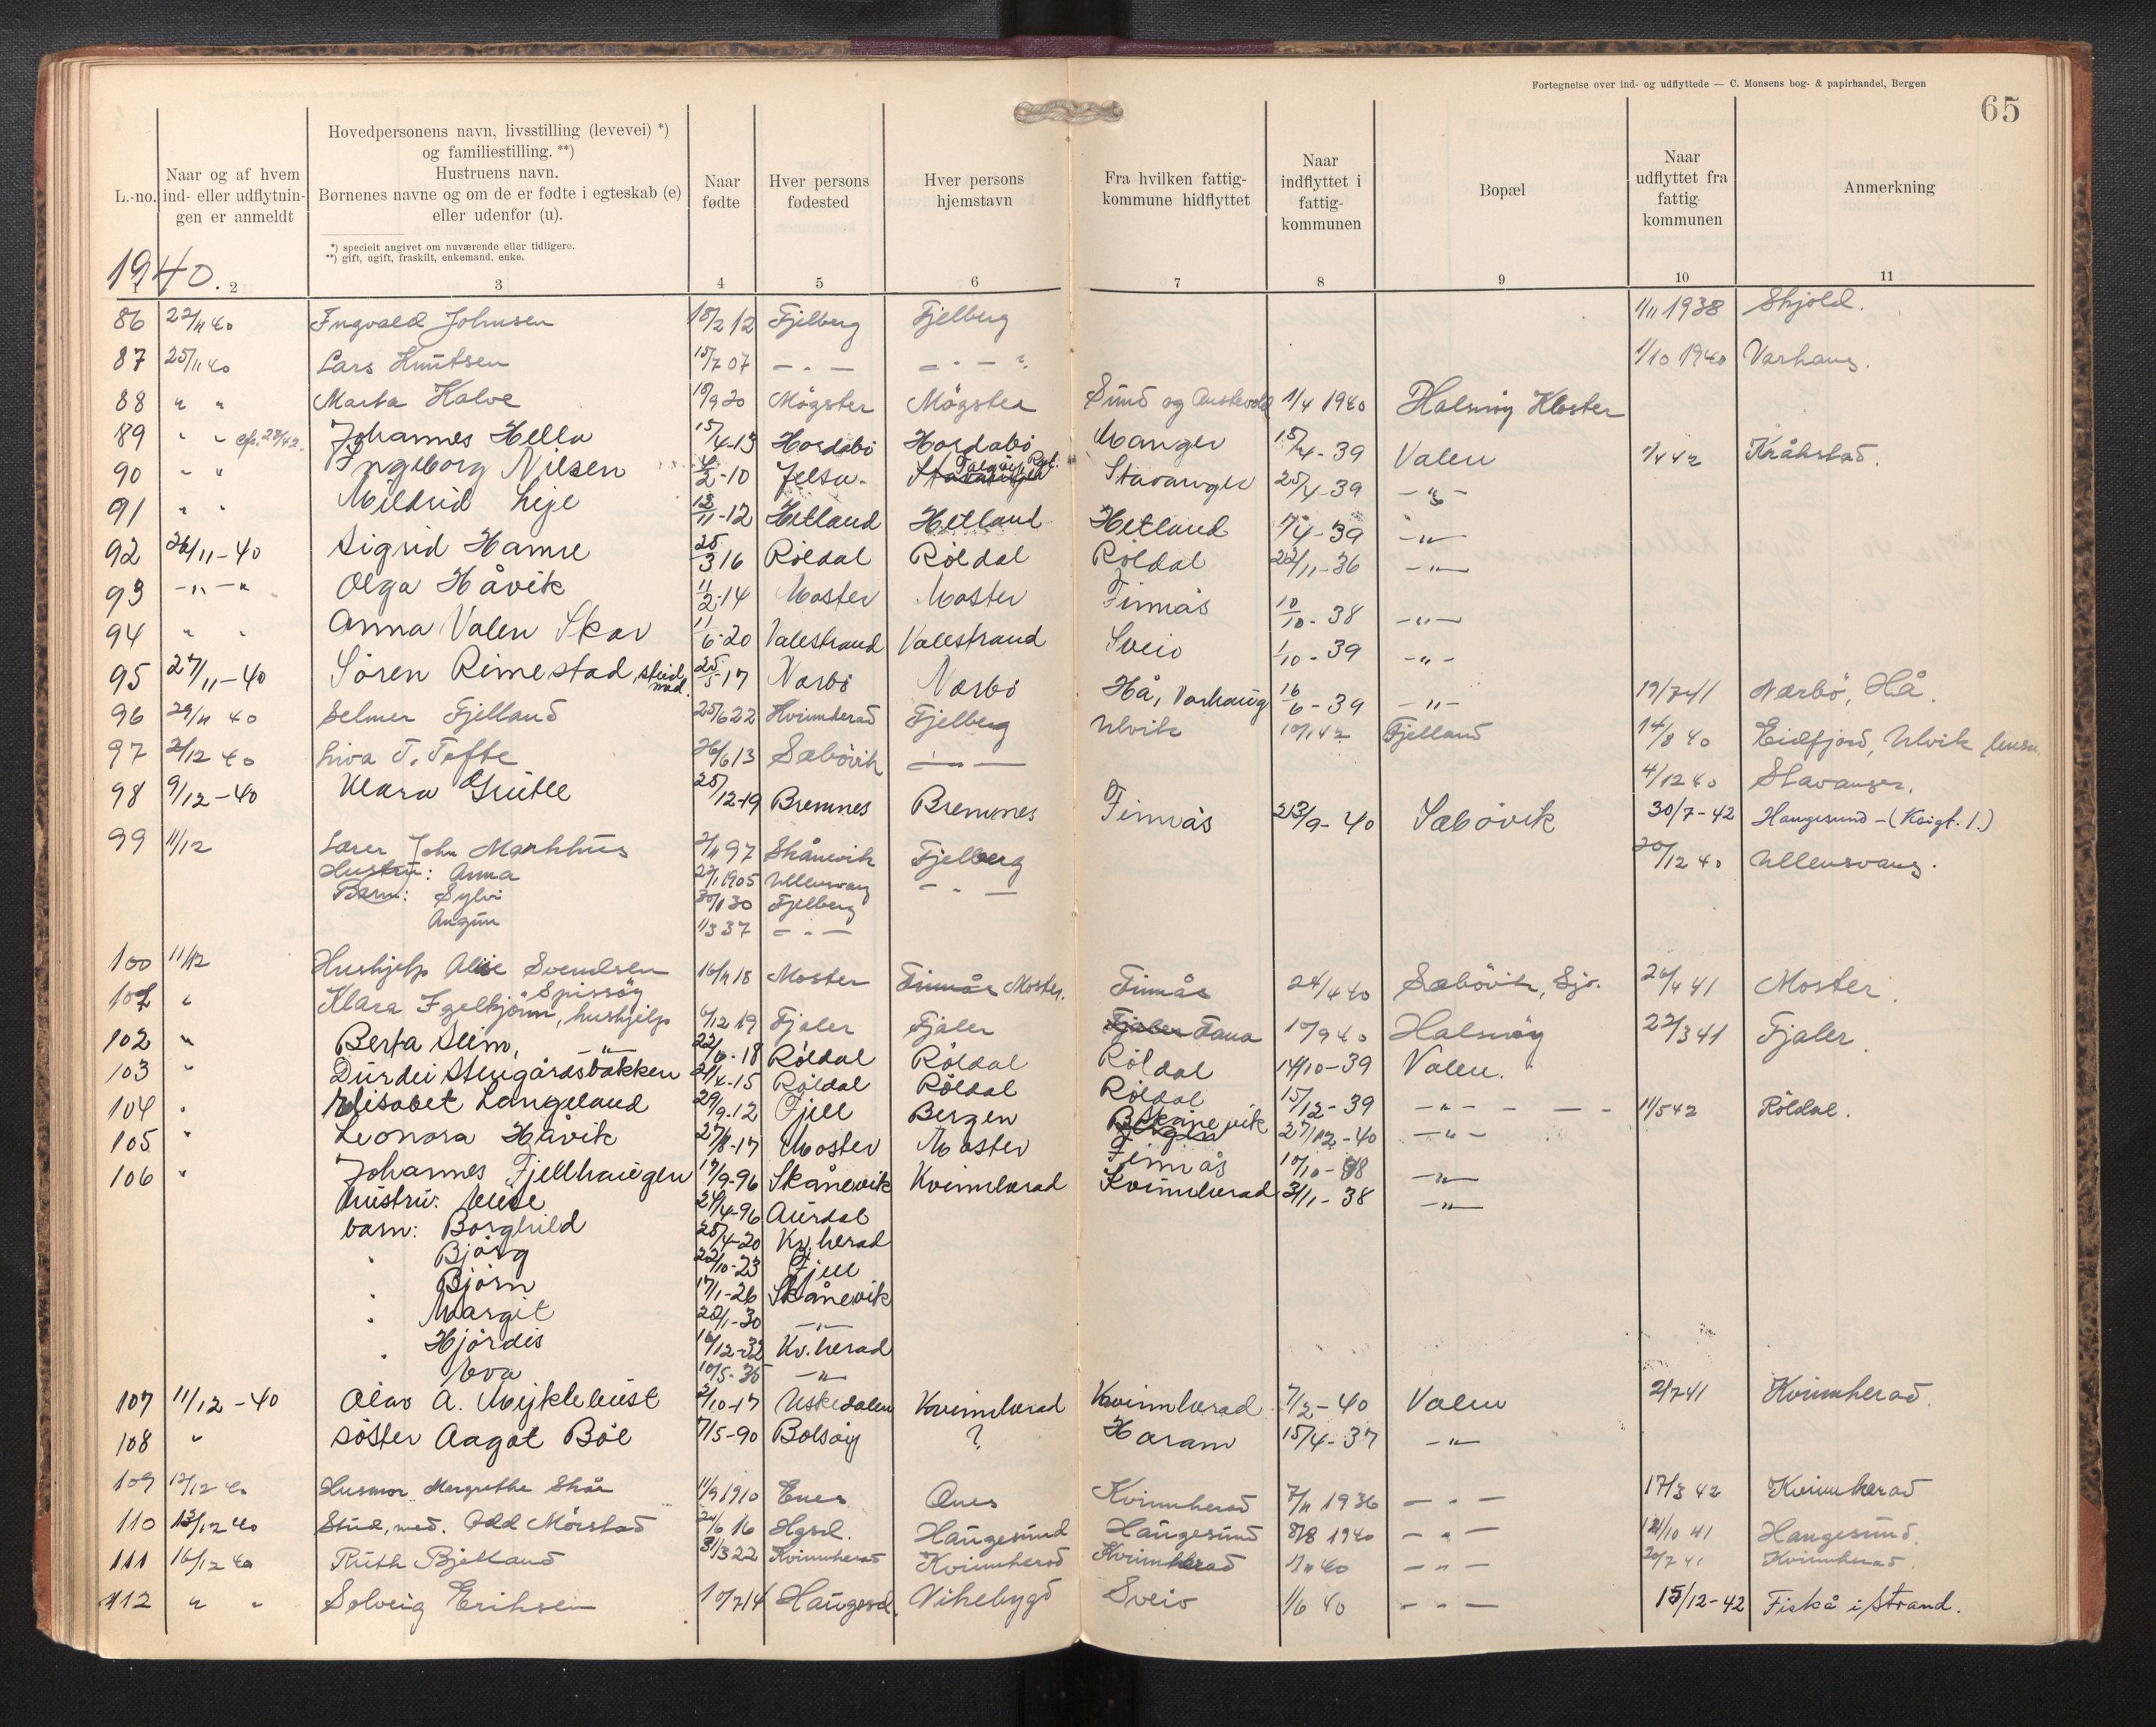 Fortegnelse over ind- og udflyttede — C. Monsens bog- & papirhandel, Bergen
65
L.-no.
Naar og af hvem ind- eller udflytningen er anmeldt
Hovedpersonens navn, livsstilling (levevei) *)
og familiestilling. **)
Hustruens navn.
Børnenes navne og om de er fødte i egteskab (e)
eller udenfor (u).
*) specielt angivet om nuværende eller tidligere.
**) gift, ugift, fraskilt, enkemand, enke.
Naar fødte
Hver persons fødested
Hver persons hjemstavn
Fra hvilken fattigkommune hidflyttet
Naar indflyttet i fattigkommunen
Bopæl
Naar udflyttet fra fattigkommunen
Anmerkning
1940.
1 2 3 4 5 6 7 8 9 10 11
86 22/11 40 Ingvald Johnsen 18/2 12 Fjelberg Fjelberg 1/11 1938 Skjold.
87 25/11 40 Lars Knutsen 15/7 07 — " — — " — 1/10 1940 Varhaug.
88 " " Marta Kalve 19/9 20 Møgster Møgster Sund og Austevold 1/4 1940 Halsnøy Kloster
89 " " Johannes Hella 15/4-13 Hordabø Hordabø Manger 15/4-39 Valen 1/4 42 Kråkstad.
90 " " Ingeborg Nilsen 4/2-10 Jelsa Stavanger Stavanger 25/4-39 — " —
91 " " Mildrid Lije 12/11-12 Hetland Hetland Hetland 1/4-39 — " —
92 26/11-40 Sigrid Hamre 25/3 16 Röldal Röldal Röldal 22/11-36 — " —
93 — " — " Olga Håvik 11/2-14 Moster Moster Finnås 10/10-38 — " —
94 " " Anna Valen Skar 11/6-20 Valestrand Valestrand Sveio 1/10-39 — " —
95 27/11-40 Sören Rimestad, stud. med. 25/5-17 Nærbö Nærbö Hå, Varhaug 16/6-39 — " — 19/7 41 Nærbö, Hå.
96 29/11 40 Selmer Fjelland 25/6 22 Kvinnherad Fjelberg Ulvik 10/1 42 Fjelland 14/8 40 Eidfjord, Ulvik
97 2/12 40 Liva T. Tofte 26/6 13 Sæbövik — " — 4/12 40 Stavanger.
98 9/12-40 Klara Grutle 25/12-19 Bremnes Bremnes Finnås 23/9-40 Sæbövik 30/7-42 Haugesund - (Kaigt. 1.)
99 11/12 Lærer John Markhus 2/11 97 Skånevik Fjelberg 20/12 40 Ullensvang.
Hustru: Anna 22/1 1905 Ullensvang — " —
Barn: Sylvi 30/1 30 Fjelberg
Augun 1/3 37 — " —
100 11/12 Hushjelp Alise Svendsen Spissøy 16/11 18 Moster Finnås Moster. Finnås 24/4 40 Sæbövik, Sjo. 26/4 41 Moster.
101 " Klara Igelkjönn, hushjelp 6/12 19 Fjaler Fjaler Fjaler Fana 10/9 40 Halsnöy 22/3 41 Fjaler.
102 " Berta Seim, 22/6-18 Röldal Röldal Röldal 14/10-39 Valen.
103 " Durdei Stengårdsbakken 21/4-15 Röldal Röldal Röldal 15/12-39 — " — 11/5 42 Röldal.
104 " Elisabet Langeland 29/9-12 Fjell Bergen Bergen Skånevik 27/12-40 — " —
105 " Leonora Håvik 27/8-17 Moster Moster Finnås 10/10-38 — " —
106 " Johannes Fjellhaugen 17/9-96 Skånevik Kvinnherad Kvinnherad 3/1-38 — " —
hustru: 24/4-96 Aurdal
barn: Borghild 25/4-20 Kv.herad
" Björg 22/10-23 Fjell
Björn 17/1-26 Skånevik
" Margit 20/1-30 — " —
" Hjördis 16/12-32 Kv.herad
Eva 10/5-36 — " —
107 11/12-40 Olav A. Myklebust 2/10-17 Uskedalen Kvinnherad Kvinnherad 7/2-40 Valen 2/7 41 Kvinnherad.
108 " söster Aagot Böe 7/5-90 Bolsöy ? Haram 15/4-37 — " —
109 12/12 40 Husmor Margrethe Skår 11/9 1910 Enes Ænes Kvinnherad 7/11 1936 — " — 17/3 42 Kvinnherad
110 13/12 40 Stud. med. Odd Mørstad 24/6 16 Hgsd. Haugesund Haugesund 8/8 1940 — " — 14/10 41 Haugesund.
111 16/12 40 Ruth Bjelland 31/3 22 Kvinnherad Kvinnherad Kvinnherad 1/11 40 — " — 20/7 41 Kvinnherad.
112 " " Solveig Eriksen 10/7 14 Haugesd. Vikebygd Sveio 1/6 40 — " — 15/12-42 Fiskå i Strand.